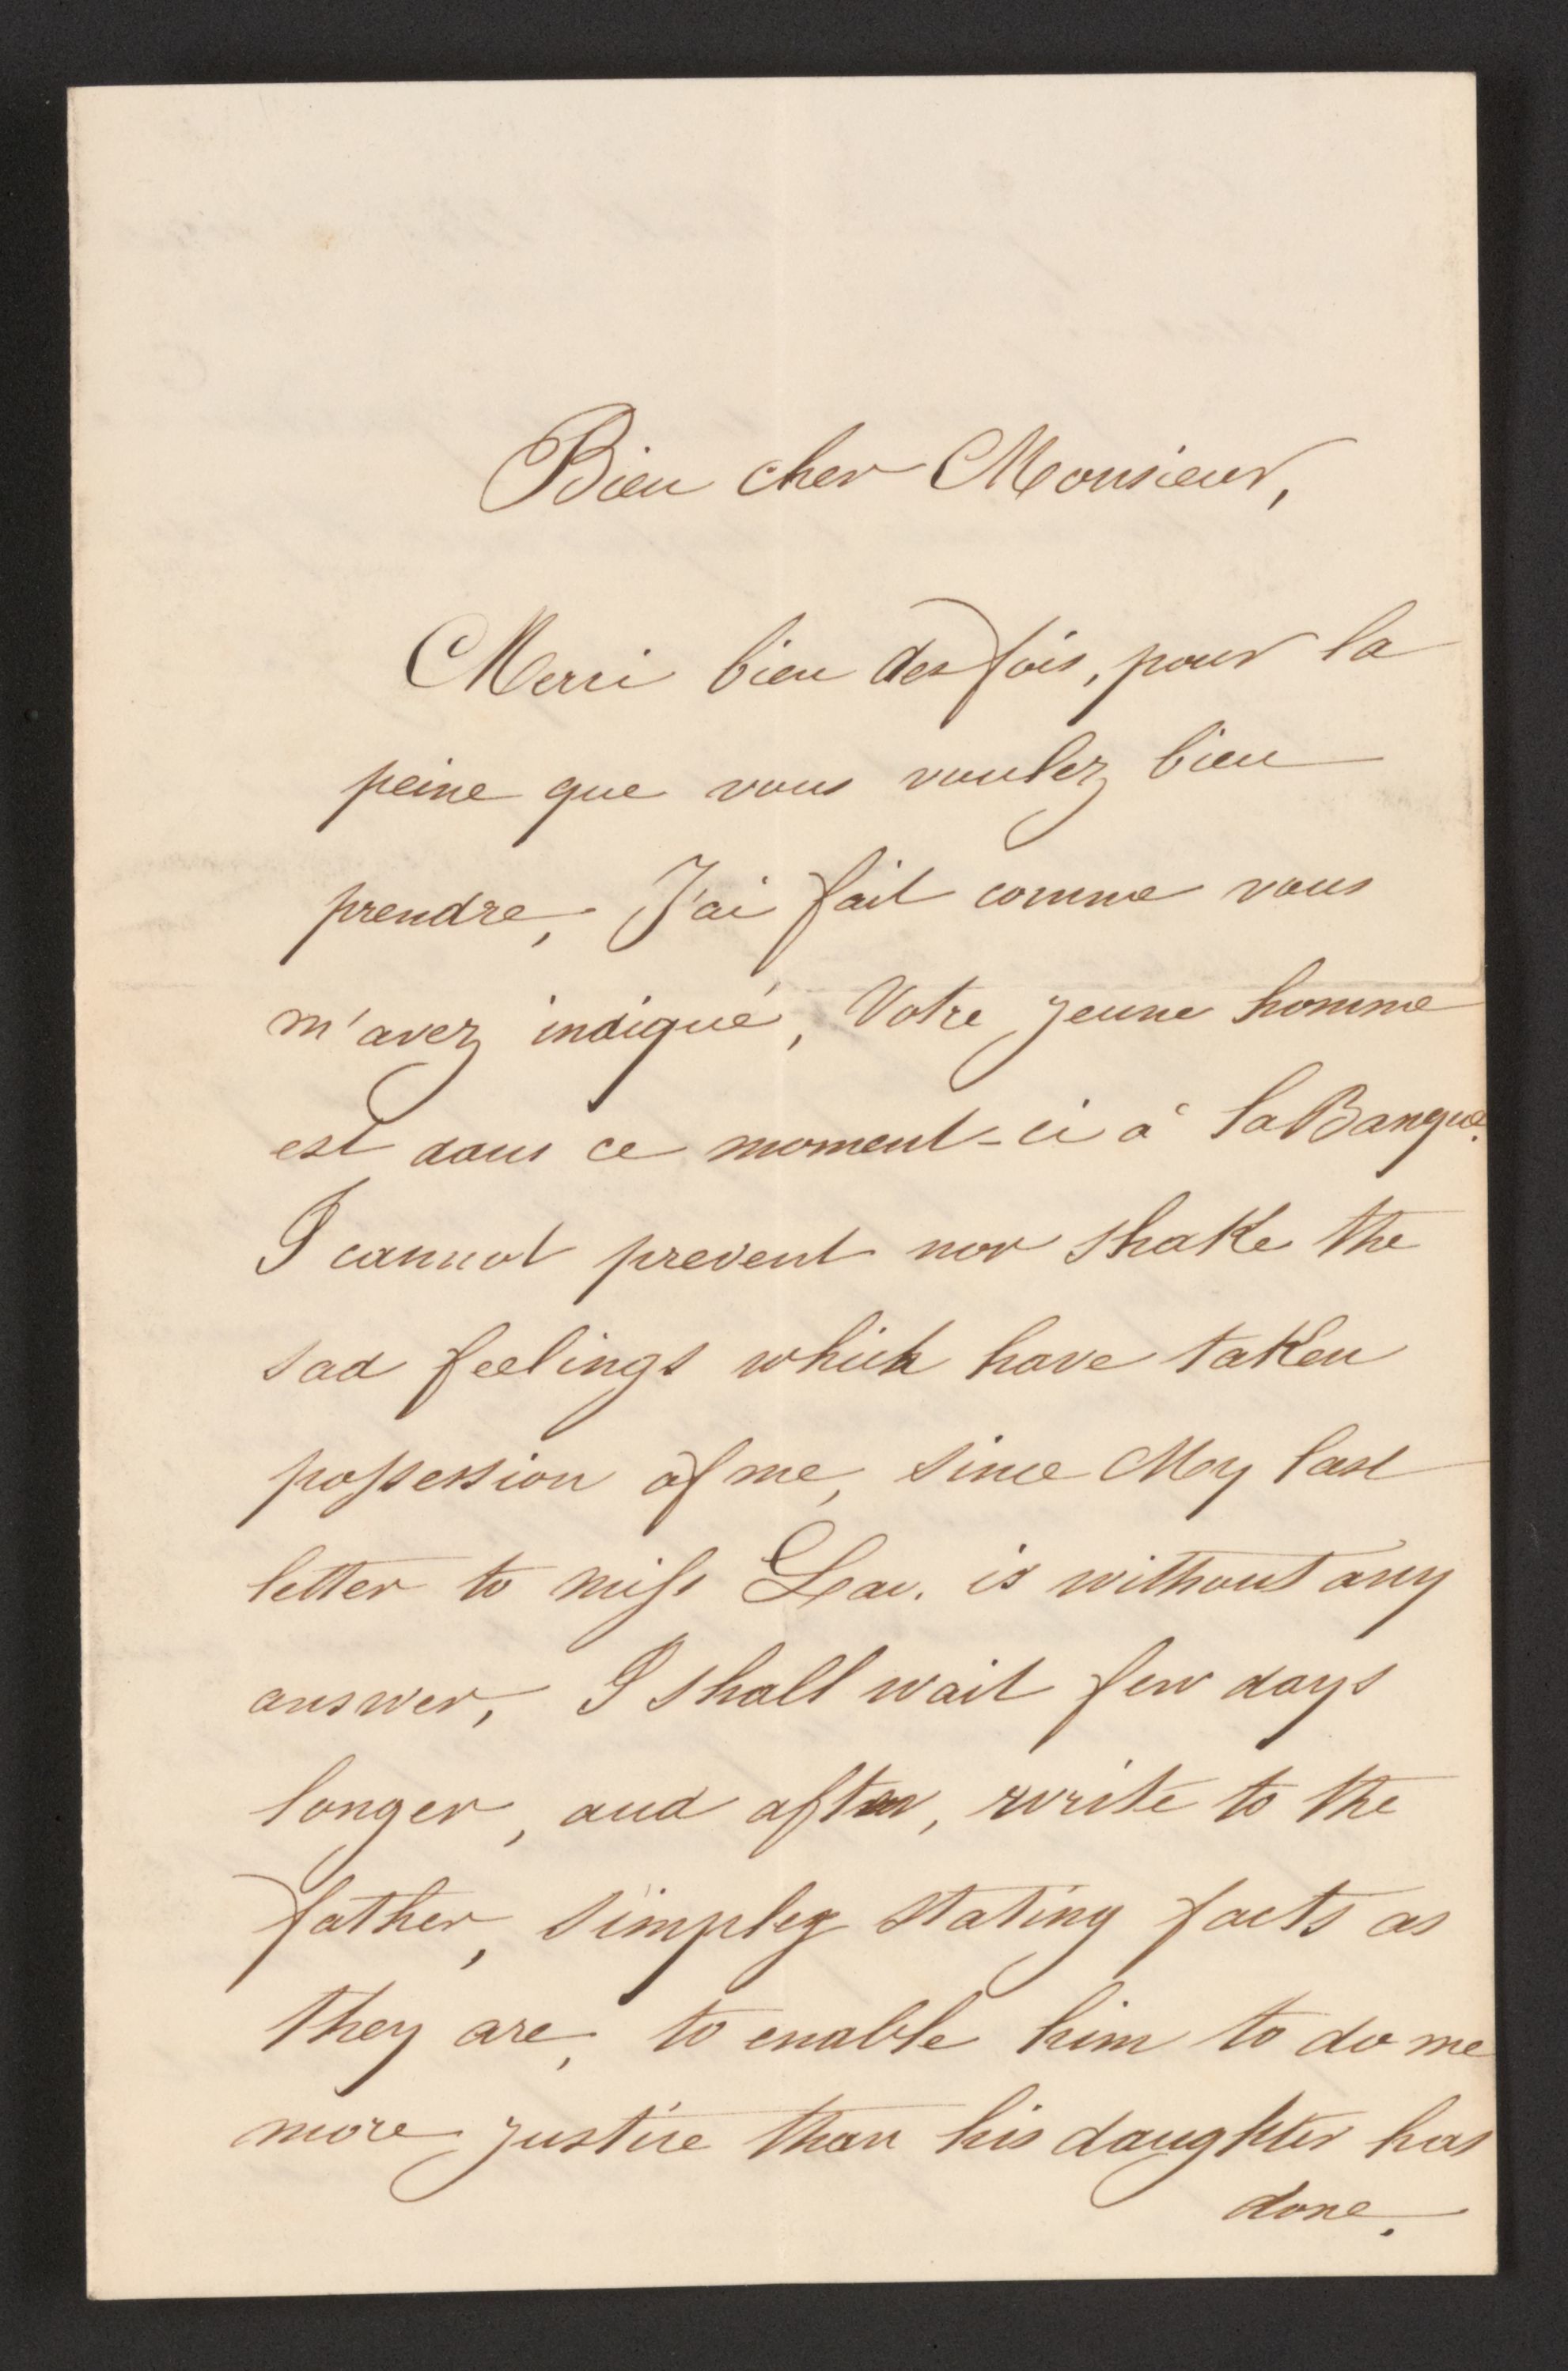 Bien cher Monsieur,
Merci bien des fois, pour la
peine que vous voulez bien
prendre, J'ai fait comme vous
m'avez indiqué, Votre jeune homme
est dans ce moment-ci à la Banque.
I cannot prevent nor shake the
sad feelings which have taken
possession of me, since My last
letter to miss Lav. is without any
answer, I shall wait few days
longer, and after, write to the
father, simply stating facts as
they are, to enable him to do me
more justice than his daughter has
done.